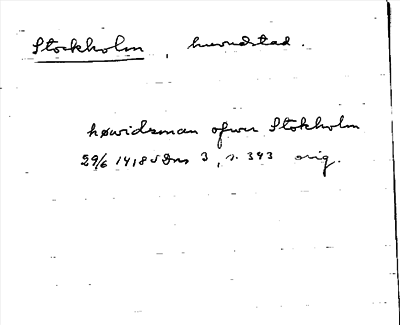 Stockholm, huvudstad.
høwidzman ofwer Stokholm
29/6 1418 SDns 3, s. 343 orig.